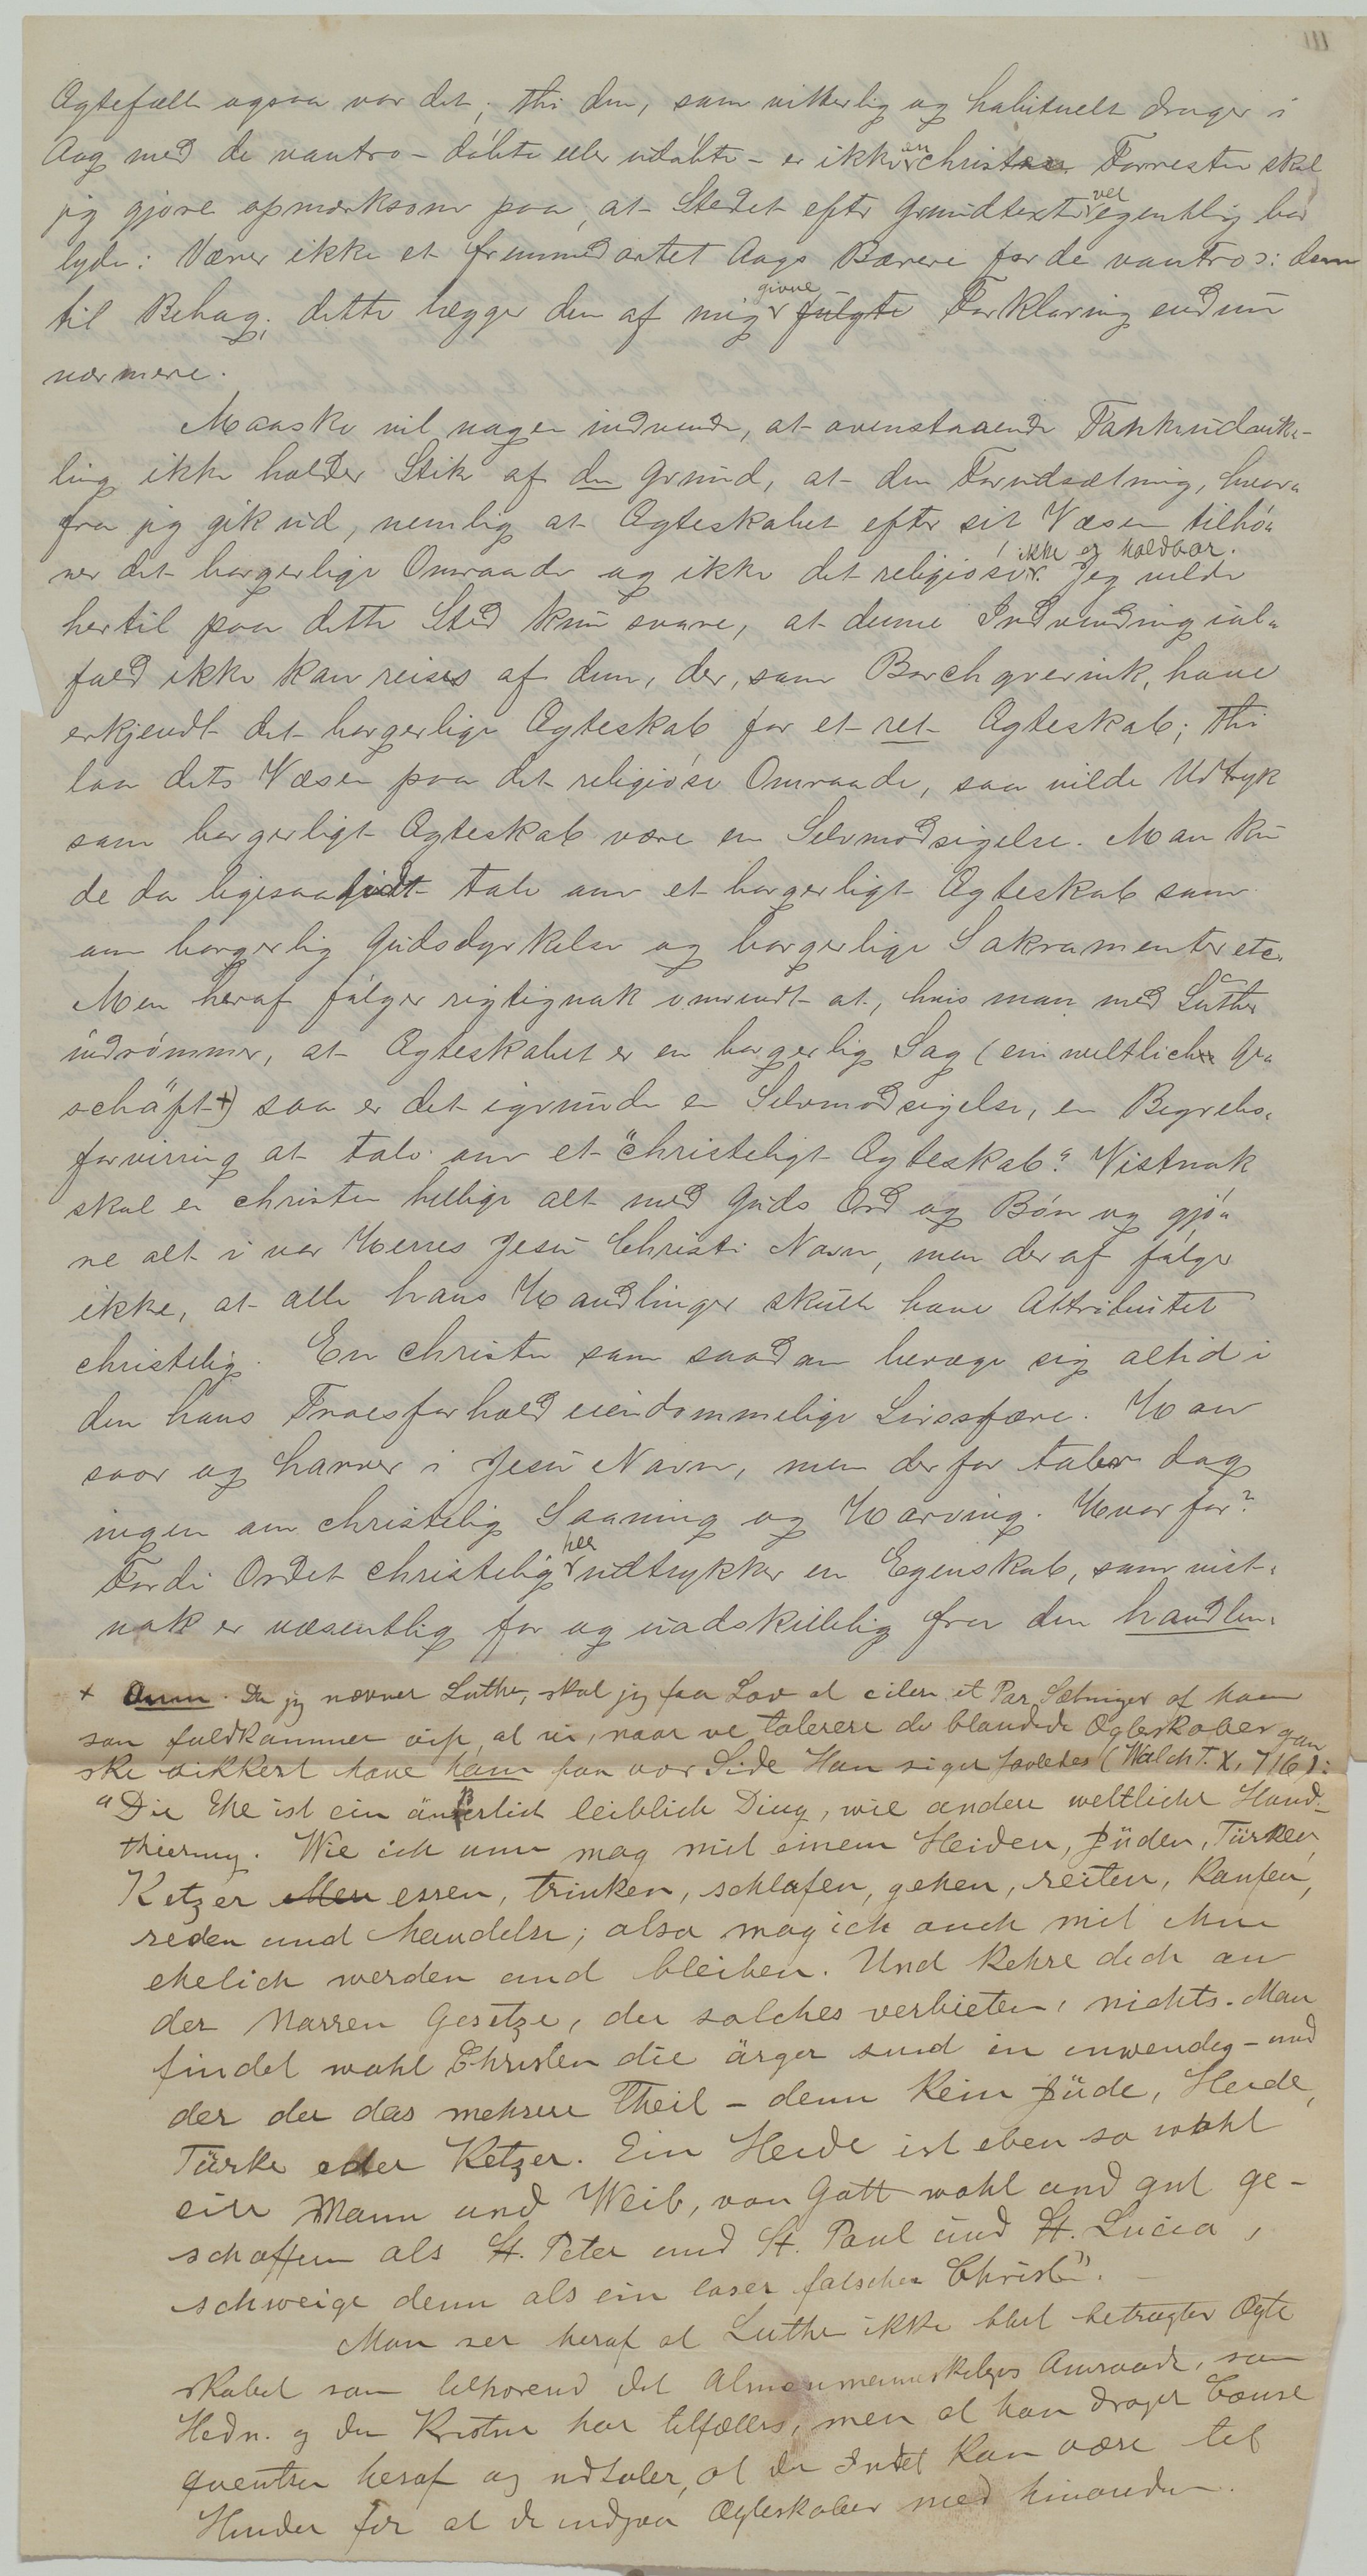 III
Ægtefælle ogsaa var det; thi den, som vitterlig og habituelt drager i
Aag med de vantro - døbte eller udøbte - er ikke en christen. Forresten skal
jeg gjøre opmærksom paa, at Stedet efter Grundtexten vel egentlig bør
lyde: Værer ikke et fremmedartet Aags Bærere for de vantro ɔ: dem
til Behag; dette lægger den af mig givne fulgte Forklaring endnu
nærmere.
Maaske vil nogen indvende, at ovenstaaende Tankeudvik-
ling ikke holder Stik af den Grund, at den Forudsætning, hvor-
fra jeg gik ud, nemlig at Ægteskabet efter sit Væsen tilhø-
rer det borgerlige Omraade og ikke det religiøse, ikke er holdbar. Jeg vilde
hertil paa dette Sted kun svare, at denne Indvending ial-
fald ikke kan reises af dem, der, som Borchgrevink, have
erkjendt det borgerlige Ægteskab for et ret Ægteskab; thi
laa dets Væsen paa det religiøse Omraade, saa vilde Udtryk
som borgerligt Ægteskab være en Selvmodsigelse. Man kun
de da ligesaa godt tale om et borgerligt Ægteskab som
om borgerlig Gudsdyrkelse og borgerlige Sakramenter etc.
Men heraf følger rigtignok omvendt at, hvis man med Luther
indrømmer, at Ægteskabet er en borgerlig Sag (ein weltlich Ge-
schäft +) saa er det igrunde en Selvmodsigelse, en Begrebs-
forvirring at tale om et "christeligt Ægteskab". Vistnok
skal en christen hellige alt med Guds Ord og Bøn og gjø-
re alt i vor Herres Jesu Christi Navn, men deraf følger
ikke, at alle hans Handlinger skulle have Attributet
christelig. En christen som saadan bevæge sig altid i
den hans Troesforhold eiendommelige Livssfære. Han
saar og harver i Jesu Navn, men derfor taler dog
ingen om christelig Saaning og Harving. Hvorfor?
Fordi Ordet christelig her udtrykker en Egenskab, som vist-
nok er væsentlig for og uadskillelig fra den handlen-
+ Anm. Da jeg nævner Luther, skal jeg faa Lov at citere et Par Sætninger af ham
som fuldkommen vise, at vi, naar vi tolerere de blandede Ægteskaber gan
ske sikkert have ham paa vor Side. Han siger saaledes (Walch T. X, 716):
"Die Ehe ist ein äußerlich leiblich Ding, wie andere weltliche Hand-
thierung. Wie ich nun mag mit einem Heiden, Jüden, Türken,
Ketzer essen, trinken, schlafen, gehen, reiten, kaufen,
reden und handeln; also mag ich auch mit ihm
ehelich werden und bleiben. Und kehre dich an
der Narren Gesetze, die solches verbieten, nichts. Man
findet wohl Christen die ärger sind in inwendig - und
der der das mehrere Theil - denn kein Jüde, Heide,
Türke oder Ketzer. Ein Heide ist eben so wohl
ein Mann und Weib, von Gott wohl und gut ge-
schaffen als St. Peter und St. Paul und St. Lucia,
schweige denn als ein loser falscher Christ".
Man ser heraf at Luther ikke blot betragter Ægte
skabet som tilhørend det Almenmenneskeliges Omraade, som
Hedn. og den Kristne har tilfælles, men at han drager Conse
qventsen heraf og udtaler, at der Intet kan være til
Hinder for at de indgaa Ægteskaber med hinanden.